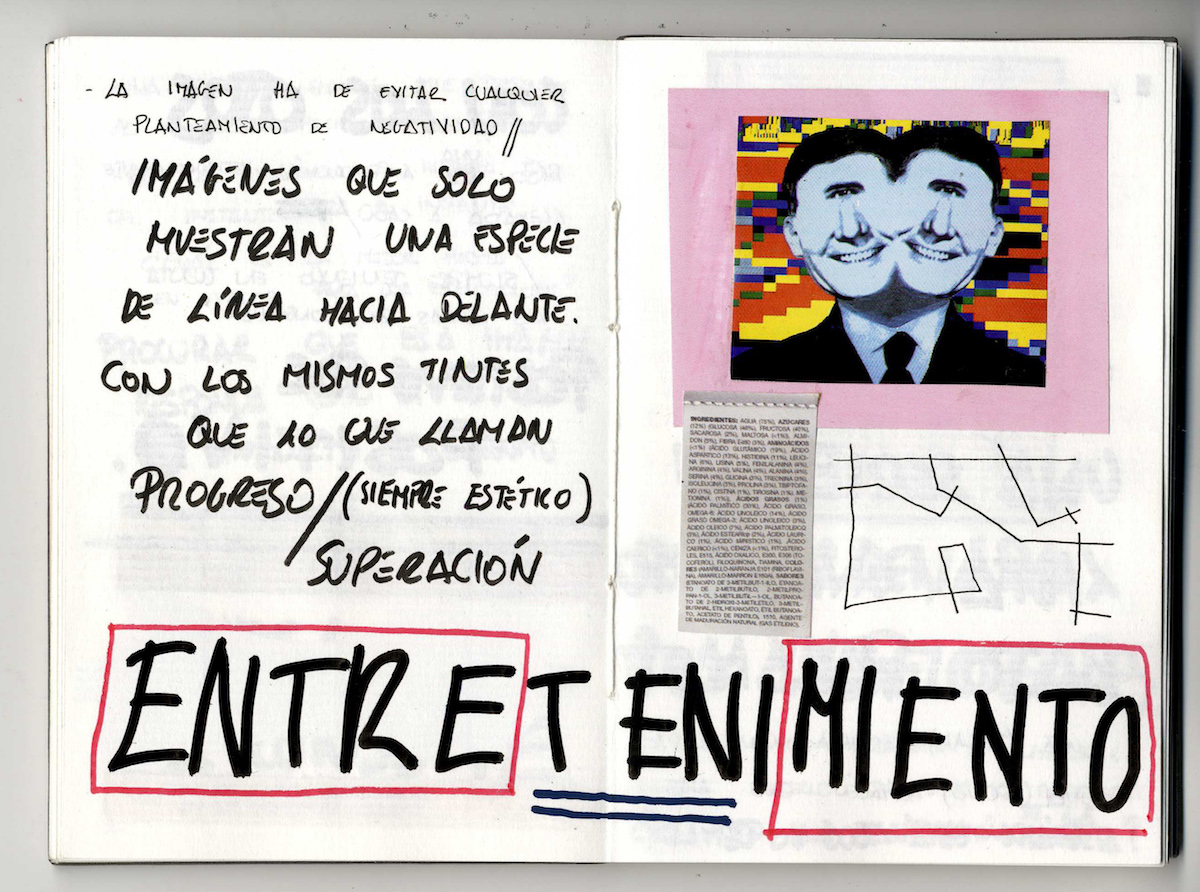 - LA IMAGEN HA DE EVITAR CUALQUIER
PLANTEAMIENTO DE NEGATIVIDAD //
IMÁGENES QUE SOLO
MUESTRAN UNA ESPECIE
DE LÍNEA HACIA DELANTE.
CON LOS MISMOS TINTES
QUE LO QUE LLAMAN
PROGRESO / (SIEMPRE ESTÉTICO)
SUPERACIÓN
INGREDIENTES: AGUA (75%), AZÚCARES
(12%) (GLUCOSA (48%), FRUCTOSA (40%),
SACAROSA (2%), MALTOSA (<1%), ALMI-
DON (5%), FIBRA E460 (3%), AMINOÁCIDOS
(<1%) (ÁCIDO GLUTÁMICO (19%), ÁCIDO
ASPÁRTICO (13%), HISTIDINA (11%), LEUCI-
NA (6%), LISINA (5%), FENILALANINA (4%),
ARGININA (4%), VALINA (4%), ALANINA (4%),
SERINA (4%), GLICINA (3%), TREONINA (3%),
ISOLEUCINA (3%), PROLINA (3%), TRIPTOFA-
NO (1%), CISTINA (1%), TIROSINA (1%), ME-
TIONINA (1%), ÁCIDOS GRASOS (1%)
(ÁCIDO PALMÍTICO (30%), ÁCIDO GRASO,
OMEGA-6: ÁCIDO LINOLEICO (14%), ÁCIDO
GRASO OMEGA-3: ÁCIDO LINOLEICO (3%),
ÁCIDO OLEICO (7%), ÁCIDO PALMITOLEICO
(3%), ÁCIDO ESTEÁRICO (2%), ÁCIDO LAURI-
CO (1%), ÁCIDO MIRÍSTICO (1%), ÁCIDO
CAERICO (<1%), CENIZA (<1%), FITOSTERO-
LES, E515, ÁCIDO OXÁLICO, E300, E306 (TO-
COFEROL), FILOQUINONA, TIAMINA, COLO-
RES (AMARILLO-NARANJA E101 (RIBOFLAVI-
NA), AMARILLO-MARRON E160A), SABORES
(ETANOATO DE 3-METILBUT-1-ILO, ETANOA-
TO DE 2-METILBUTILO, 2-METILPRO-
PAN-1-OL, 3-METILBUTIL-1-OL, BUTANOA-
TO DE 2-HIDROXI-3-METILETILO, 3-METIL-
BUTANAL, ETIL HEXANOATO, ETIL BUTANOA-
TO, ACETATO DE PENTILO), 1510, AGENTE
DE MADURACIÓN NATURAL (GAS ETILENO).
ENTRETENIMIENTO